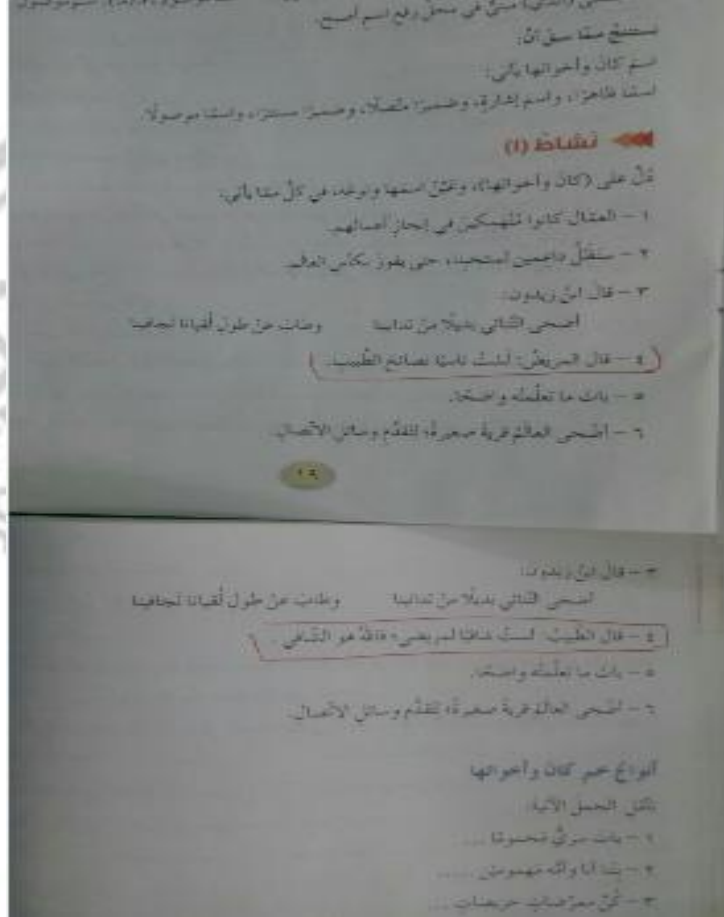 مبنيٌّ في محلّ رفع اسم أصبح.
نستنتج ممّا سبق أنّ:
اسم كان وأخواتها يأتي:
اسمًا ظاهرًا، واسم إشارة، وضميرًا متّصلًا، وضميرًا مستترًا، واسمًا موصولًا.
نشاط (١)
دُلَّ على (كان وأخواتها)، وعيّن اسمها ونوعه، في كلّ ممّا يأتي:
١ – العمّال كانوا مُنْهمكين في إنجاز أعمالهم.
٢ – سنظلّ داعمين لمنتخبنا، حتى يفوز بكأس
٣ – قال ابنُ زيدون:
أضحى التّنائي بديلًا من تدانينا وطابَ عنْ طول لُقيانا تجافينا
٤ – قال المريضُ: لستُ ناسيًا نصائحَ الطّبيب.
٥ – باتَ ما تعلّمتُه واضحًا.
٦ – أضْحى العالمُ قريةً صغيرةً؛ لتقدُّم وسائل الاتّصال.
١٩
٣ – قال ابنُ زيدون:
أضحى التّنائي بديلًا من تدانينا وطابَ عنْ طول لُقيانا تجافينا
٤ – قال الطّبيبُ: لستُ شافيًا لمريضي؛ فاللهُ هو الشّافي.
٥ – باتَ ما تعلّمتُه واضحًا.
٦ – أضْحى العالمُ قريةً صغيرةً؛ لتقدُّم وسائل الاتّصال.
أنواعُ خبر كان وأخواتها
تأمّل الجمل الآتية:
١ – بات سريٌّ محمومًا ....
٢ – بتنا أنا وأمّه مهمومين .....
٣ – كنَّ ممرّضاتٍ حريصاتٍ ...